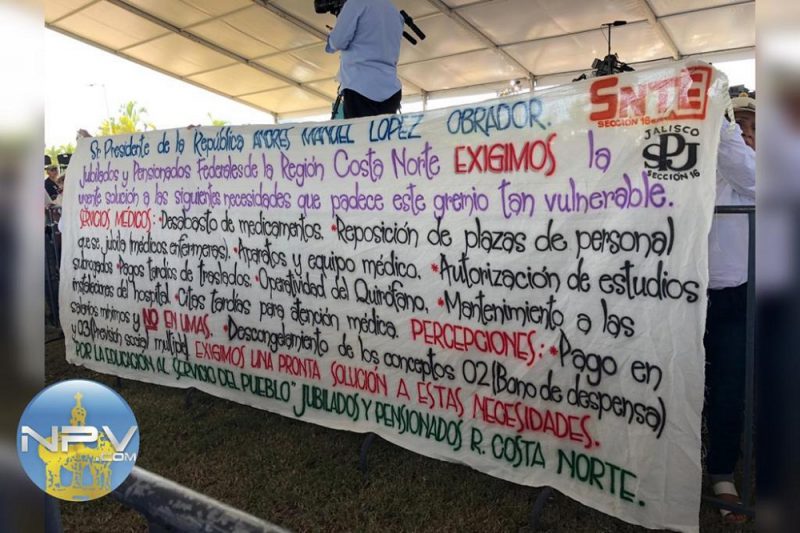 Sr. Presidente de la República ANDRES MANUEL LOPEZ OBRADOR.
Jubilados y Pensionados Federales de la Región Costa Norte EXIGIMOS la
urgente solución a las siguientes necesidades que padece este gremio tan vulnerable.
SERVICIOS MÉDICOS: •Desabasto de medicamentos. •Reposición de plazas de personal
que se jubila (médicos, enfermeras). •Aparatos y equipo médico. •Autorización de estudios
subrogados •Pagos tardíos de traslados. •Operatividad del Quirófano. •Mantenimiento a las
instalaciones del hospital. •Citas tardías para atención médica. PERCEPCIONES: •Pago en
salarios mínimos y NO EN UMAS. •Descongelamiento de los conceptos 02 (Bono de despensa)
y 03 (Previsión social multiple). EXIGIMOS UNA PRONTA SOLUCIÓN A ESTAS NECESIDADES.
"POR LA EDUCACIÓN AL SERVICIO DEL PUEBLO" JUBILADOS Y PENSIONADOS R. COSTA NORTE.
SNTE
SECCIÓN 16
JALISCO
SPJ
SECCIÓN 16
NPV
.COM